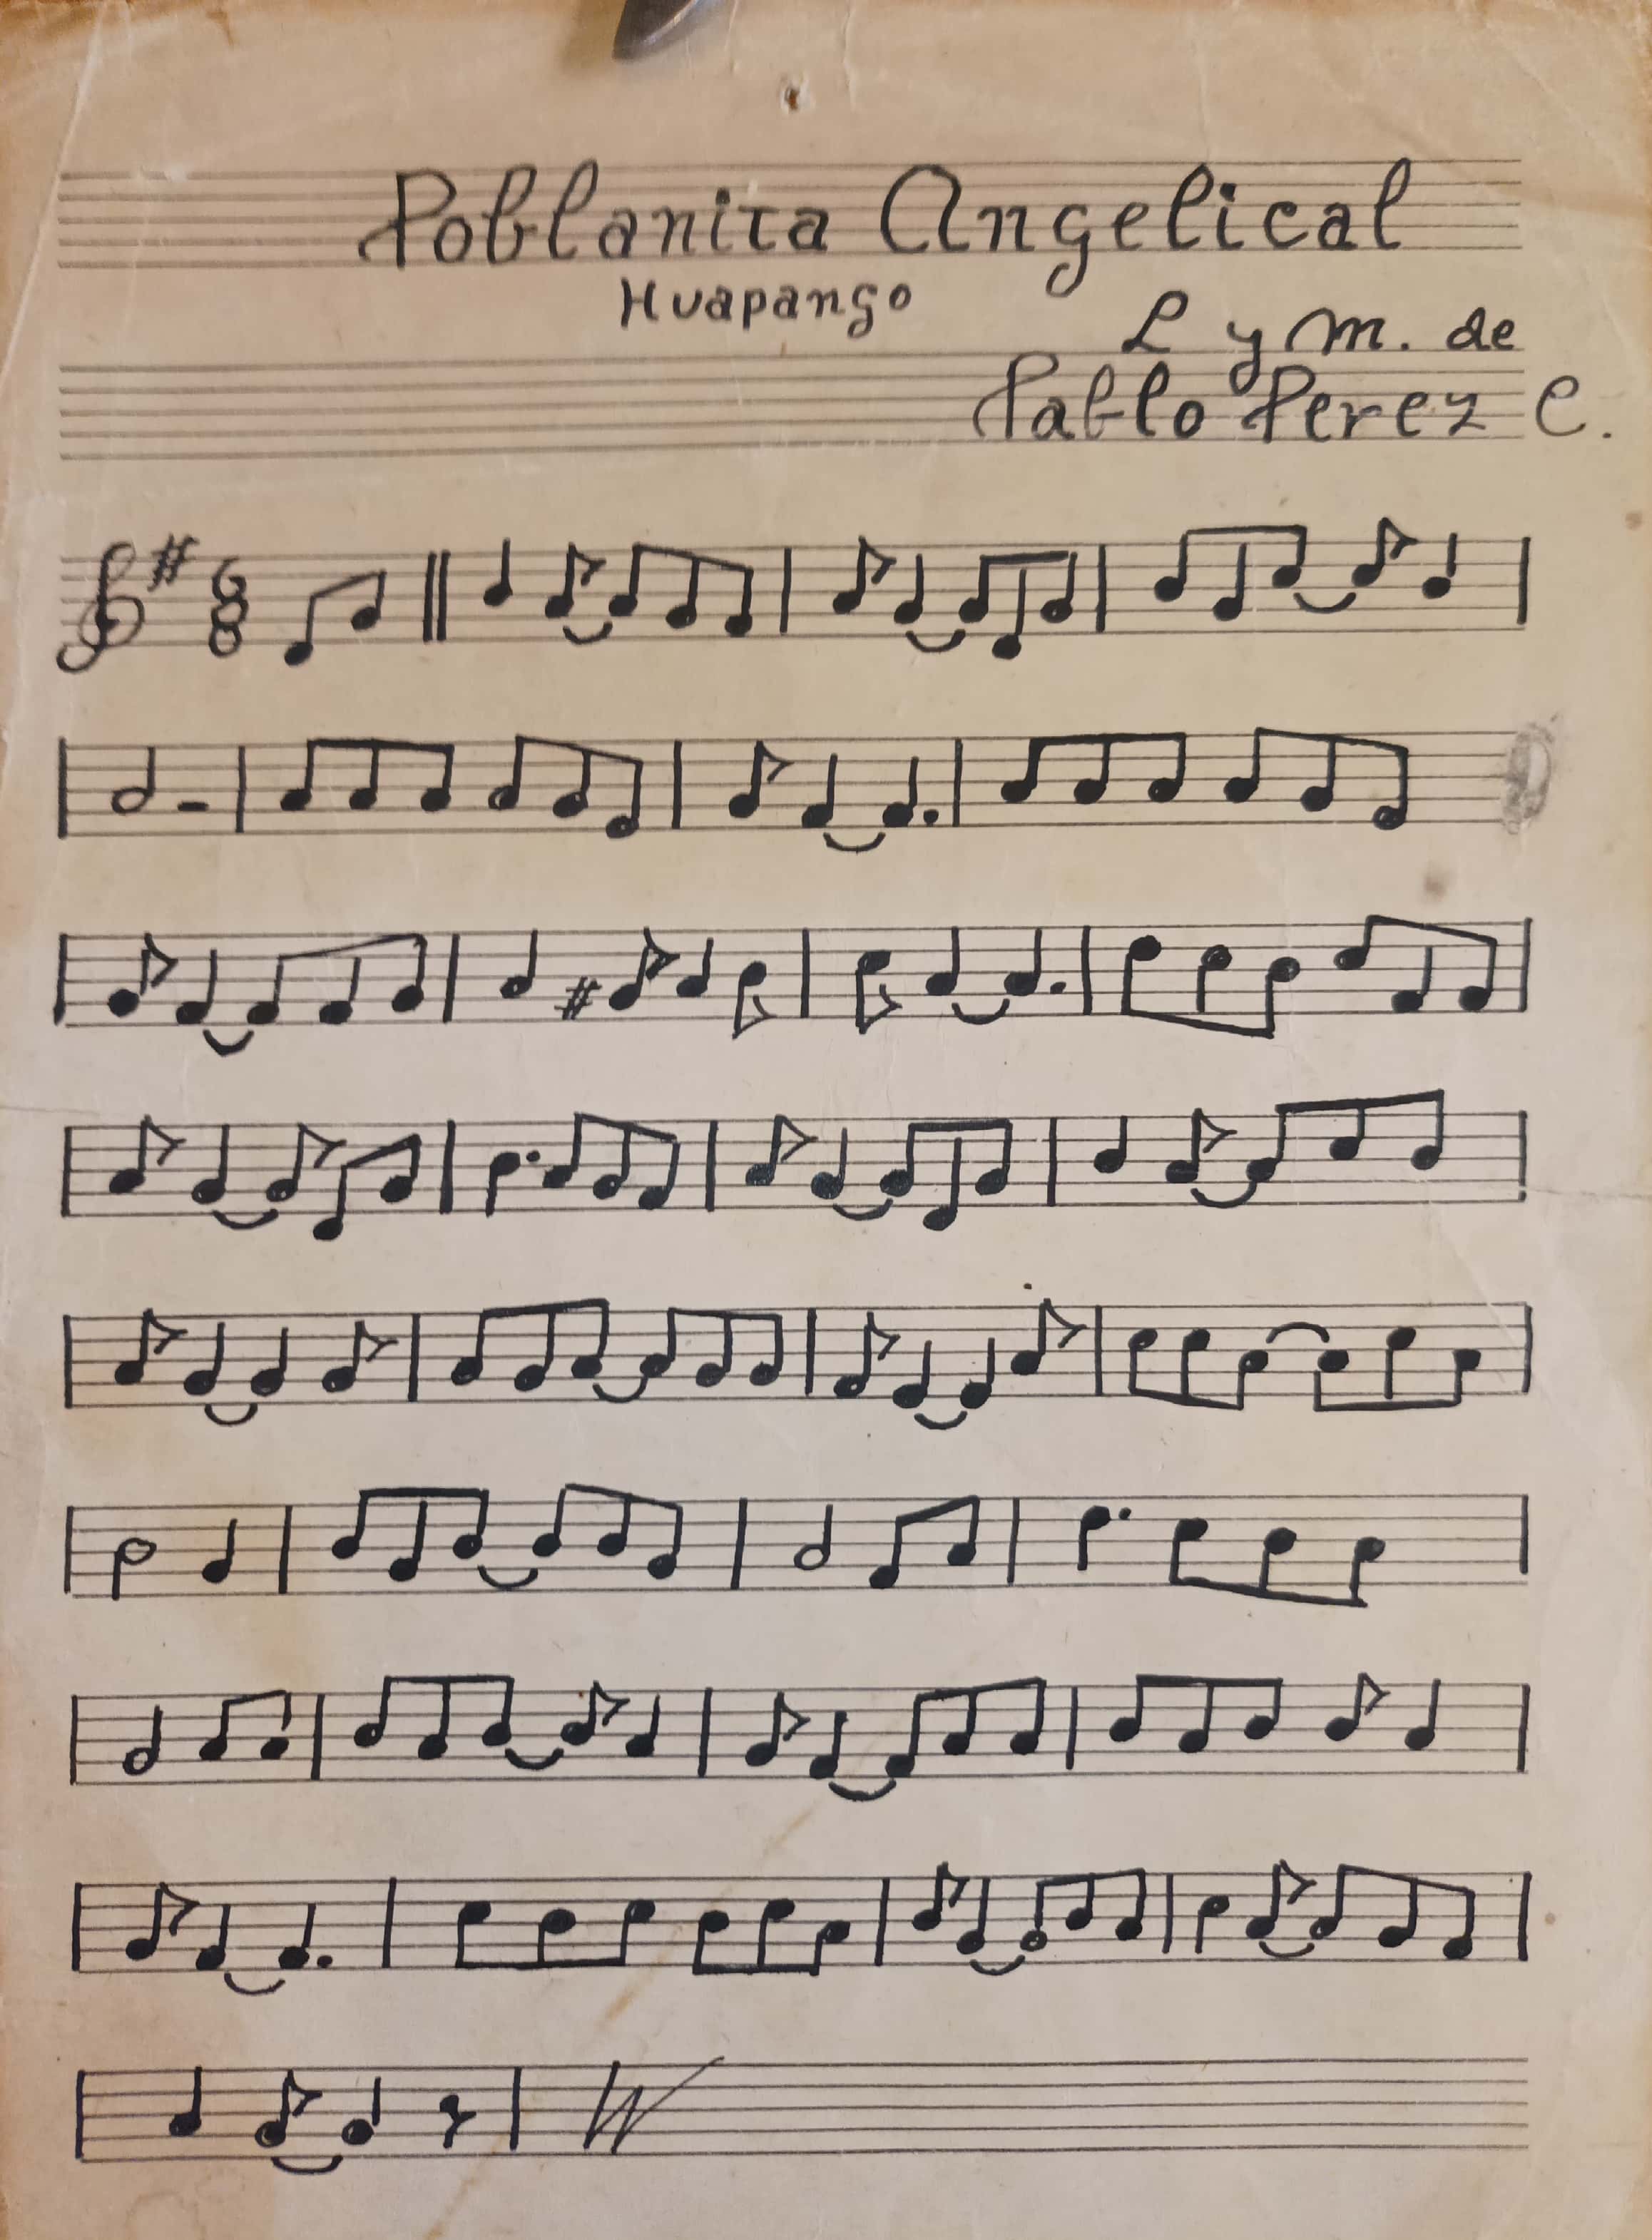 Poblanita Angelical
Huapango
L y M. de
Pablo Perez C.
6
8